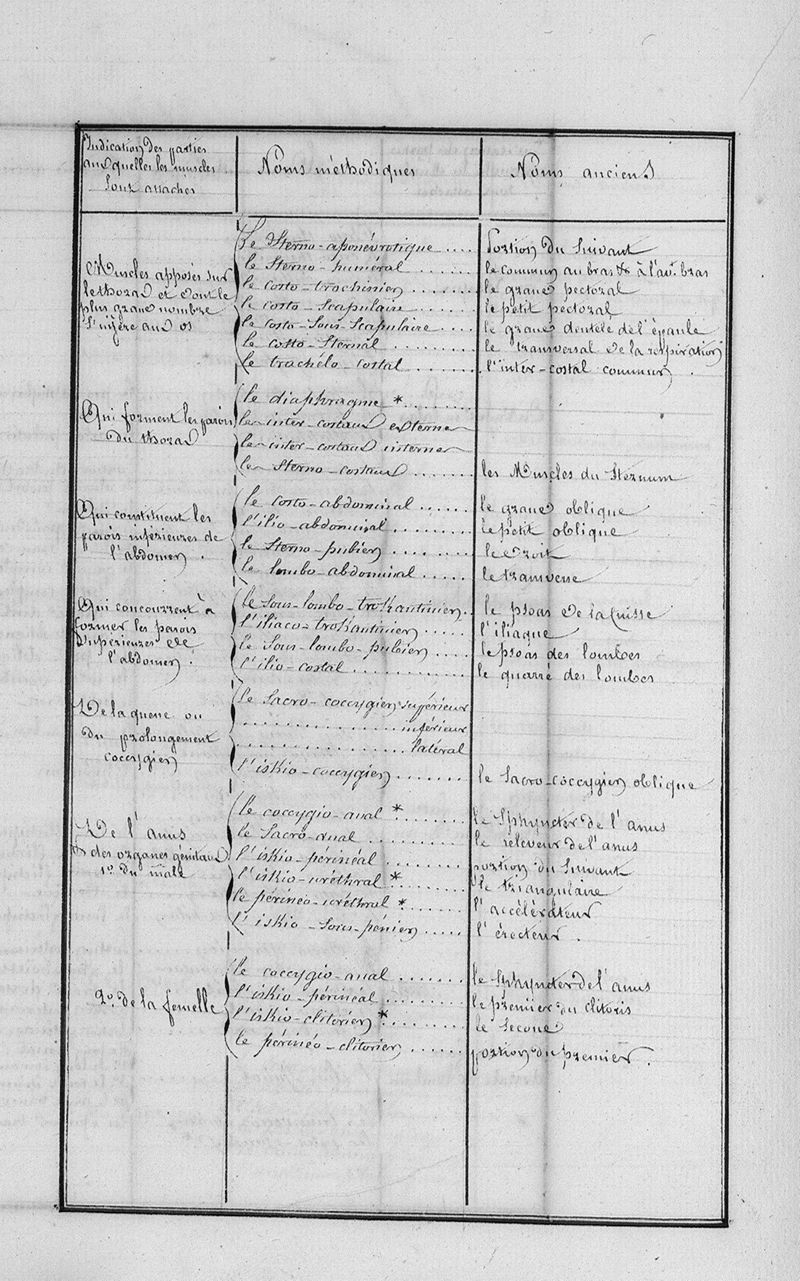 Indication des parties
aux quelles les muscles
sont attachés
Noms méthodiques
Noms anciens
Muscles apposés sur
le thorax et dont le
plus grand nombre
s'insère aux os
Le Sterno-aponévrotique .... Portion du Suivant
le Sterno-huméral ..... le commun au bras & à l'av. bras
le costo-trochinien ..... le grand pectoral
le costo-scapulaire ..... le petit pectoral
le costo-sous-scapulaire .... le grand dentelé de l'épaule
le costo-sternal ..... le transversal de la respiration
le trachélo-costal ..... l'inter-costal commun
Qui forment les parois
du thorax
le diaphragme * .......
les inter-costaux externes
les inter-costaux internes
les Sterno-costaux ...... les Muscles du Sternum
Qui constituent les
parois inférieures de
l'abdomen .
le costo-abdominal ...... le grand oblique
l'ilio-abdominal ....... le petit oblique
le Sterno-pubien ...... le droit
le lombo-abdominal ..... le transverse
Qui concourrent à
former les parois
supérieures de
l'abdomen .
le Sous-lombo-troKantinien . le psoas de la Cuisse
l'iliaco-troKantinien .... l'iliaque
le Sous-lombo-pubien .... le psoas des lombes
l'ilio-costal ......... le quarré des lombes
De la queue ou
du prolongement
coccygien
le Sacro-coccygien supérieur
................ inférieur
................ latéral
l'iskio-coccygien ....... le Sacro-coccygien oblique
De l'anus
& des organes génitaux
1o. du mâle
le coccygio-anal * ...... le Sphyncter de l'anus
le Sacro-anal ........ le releveur de l'anus
l'iskio-périnéal ....... portion du Suivant
l'iskio-uréthral * ...... le triangulaire
le périnéo-uréthral * ..... l'accélérateur
l'iskio-Sous-pénien .... l'érecteur .
2o. de la femelle
le coccygio-anal ...... le Sphyncter de l'anus
l'iskio-périnéal ....... le premier du clitoris
l'iskio-clitorien * ...... le Second
le périnéo-clitorien ..... portion du premier .